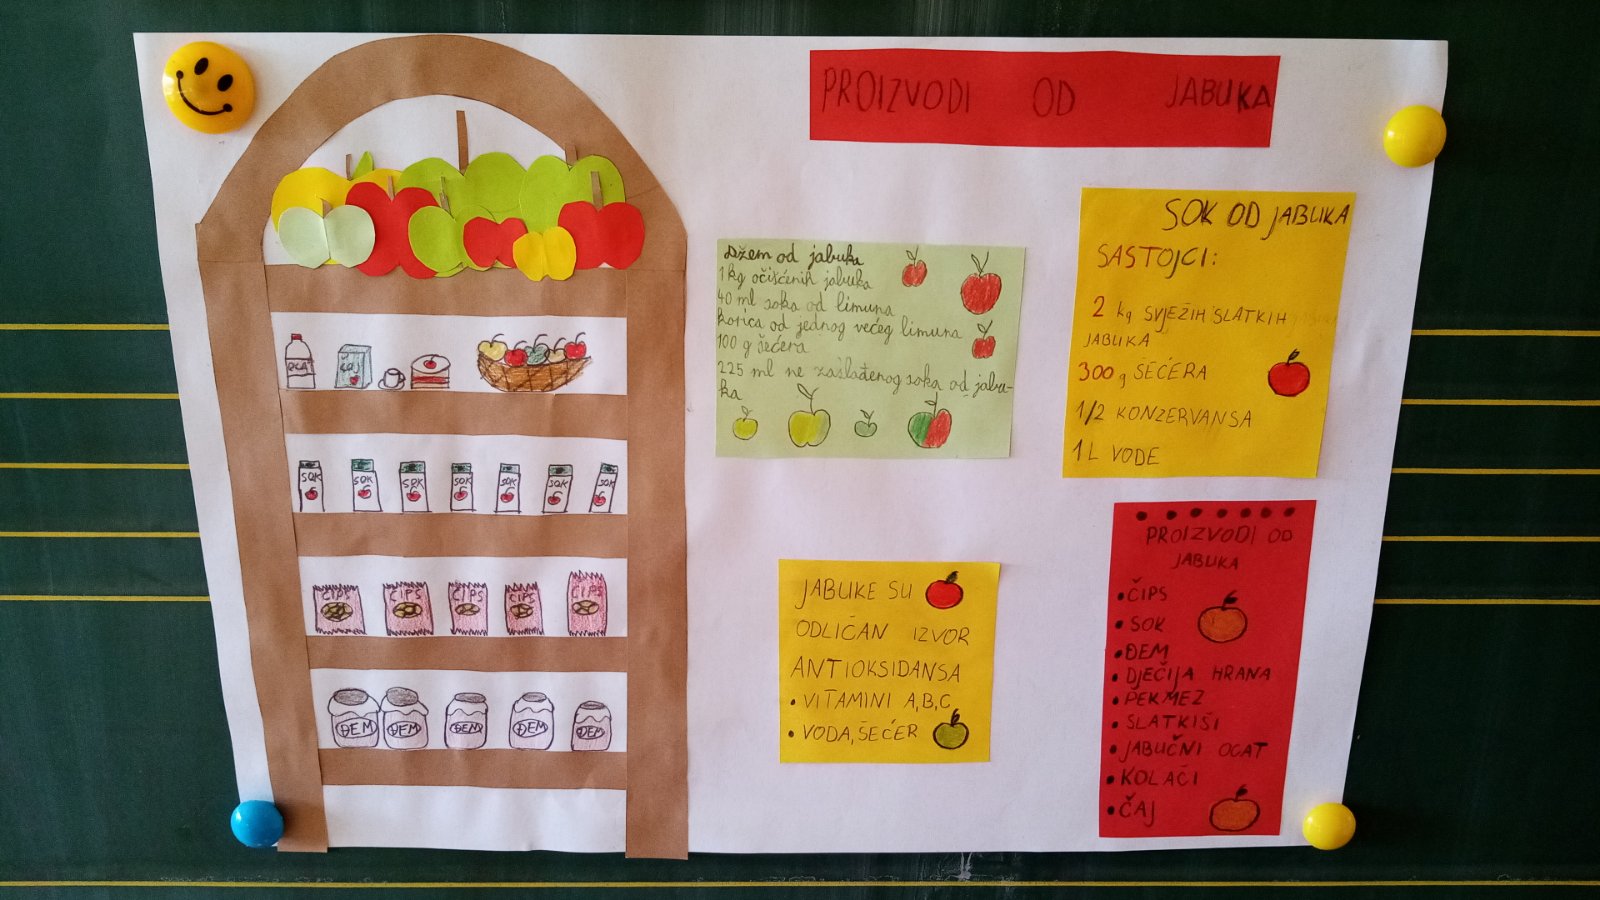 PROIZVODI OD JABUKA
Džem od jabuka
1 kg očišćenih jabuka
40 ml soka od limuna
korica od jednog većeg limuna
100 g šećera
225 ml ne zaslađenog soka od jabu-
ka
SOK OD JABUKA
SASTOJCI:
2 kg SVJEŽIH SLATKIH
JABUKA
300 g ŠEĆERA
1/2 KONZERVANSA
1 L VODE
JABUKE SU
ODLIČAN IZVOR
ANTIOKSIDANSA
• VITAMINI A,B,C
• VODA, ŠEĆER
PROIZVODI OD
JABUKA
• ČIPS
• SOK
• ĐEM
• DJEČIJA HRANA
• PEKMEZ
• SLATKIŠI
• JABUČNI OCAT
• KOLAČI
• ČAJ
ČAJ
SOK SOK SOK SOK SOK SOK SOK
ČIPS ČIPS ČIPS ČIPS ČIPS
ĐEM ĐEM ĐEM ĐEM ĐEM